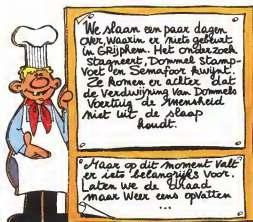 We slaan een paar dagen
over, waarin er niets gebeurt
in Grijphem. Het onderzoek
stagneert, Dommel stamp-
voet en Semafoor kwijnt.
Ze komen er achter dat
de verdwijning van Dommels
voertuig de mensheid
niet uit de slaap
houdt.
Maar op dit moment valt
er iets belangrijks voor.
Laten we de draad
maar weer eens opvatten
...